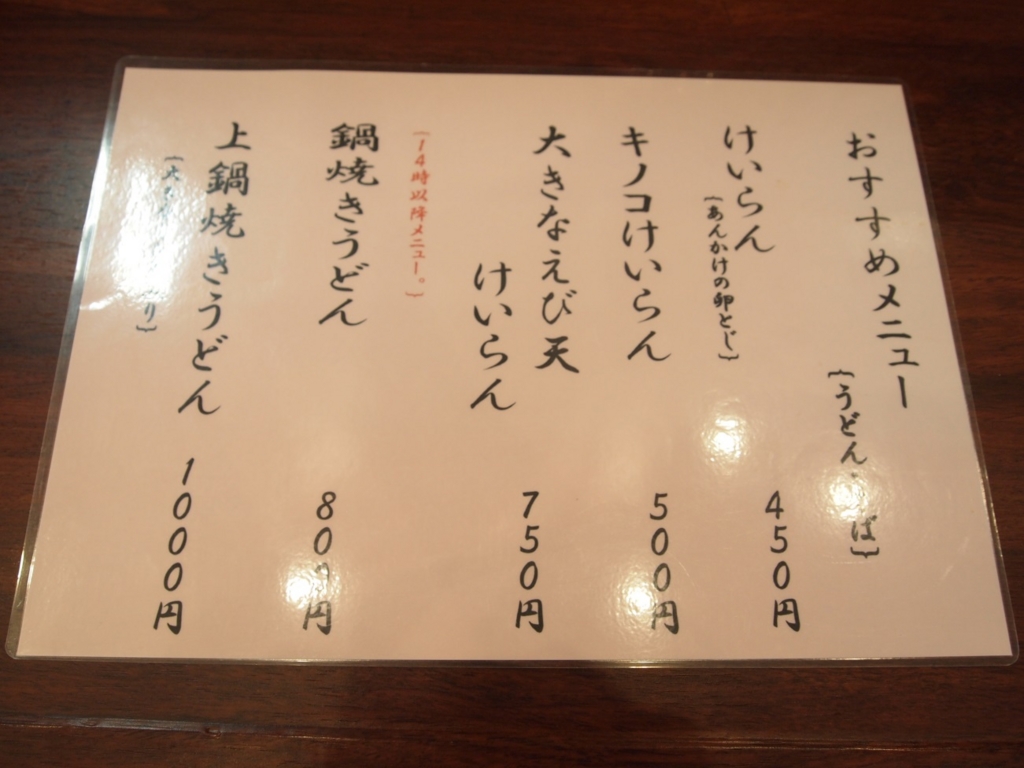 おすすめメニュー
(うどん・ ば)
けいらん
(あんかけの卵とじ)
450円
キノコけいらん
500円
大きなえび天
けいらん
750円
(14時以降メニュー。)
鍋焼きうどん
800円
上鍋焼きうどん
1000円